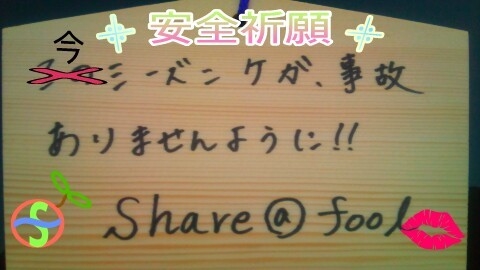 安全祈願
今シーズンケガ、事故
ありませんように!!
S Share@fool